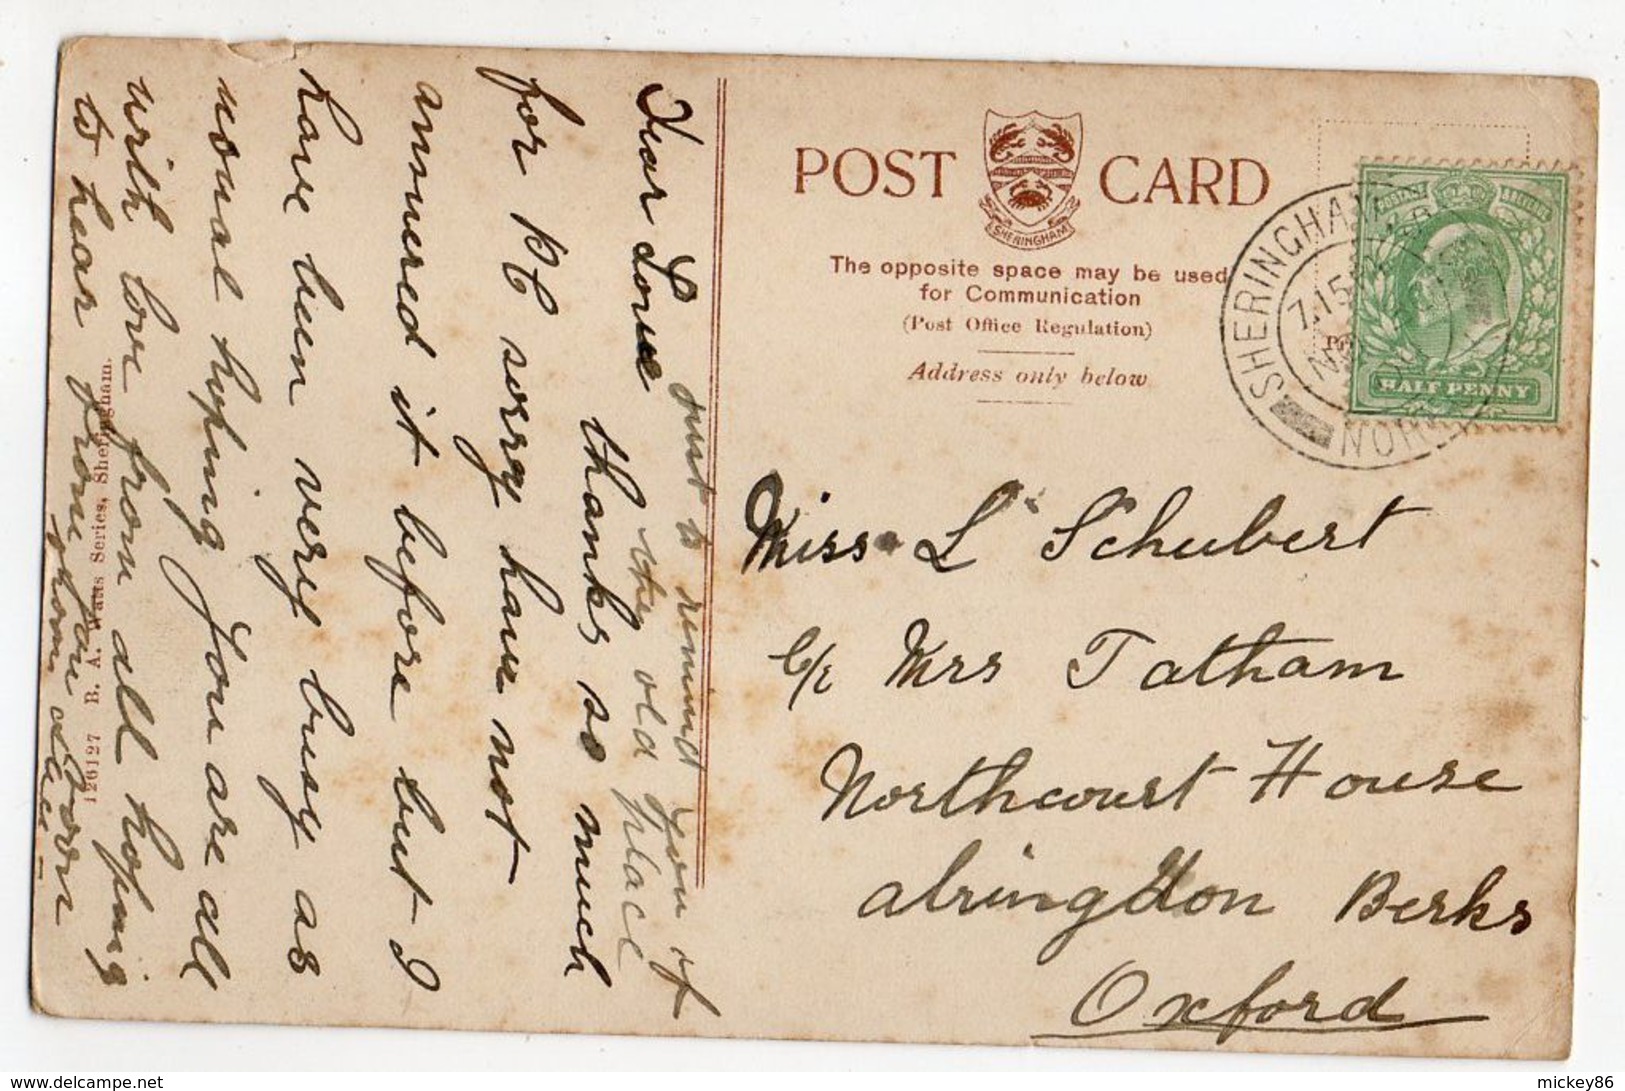 POST CARD
SHERINGHAM
The opposite space may be used
for Communication
(Post Office Regulation)
Address only below
SHERINGHAM
7.15
NOR
POSTAGE
HALF PENNY
Miss L Schubert
c/o Mrs Tatham
Northcourt House
abringdon Berks
Oxford
Just to remind you of
the old place
Dear Louie
thanks so much
for PC sorry have not
answered it before but I
have been very busy as
usual hoping you are all
with love from all hoping
to hear from you soon
from
126127 B. A. Watts Series, Sheringham.
delcampe.net
mickey86